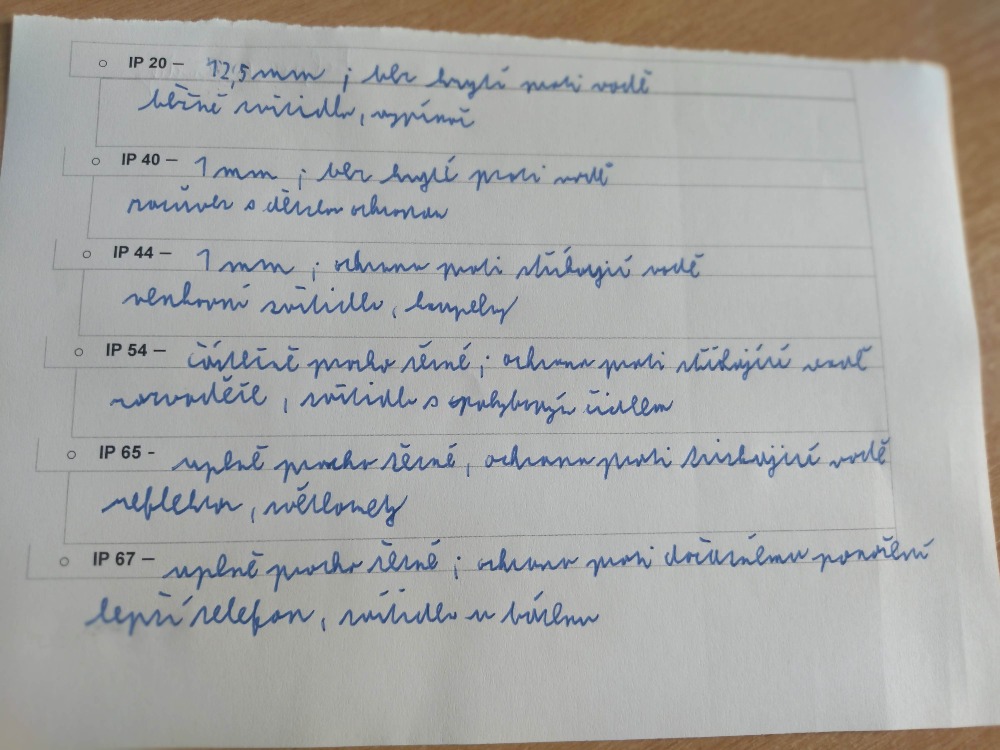 IP 20 – 12,5 mm ; bez krytí proti vodě
běžné svítidlo, vypínač
IP 40 – 1 mm ; bez krytí proti vodě
s dětskou ochranou
IP 44 – 1 mm ; ochrana proti stříkající vodě
venkovní svítidlo, koupelny
IP 54 – částečně prachotěsné ; ochrana proti stříkající vodě
rozvaděče, svítidlo s pohybovým čidlem
IP 65 - uplně prachotěsné, ochrana proti tryskající vodě
reflektor, světlomety
IP 67 – uplně prachotěsné ; ochrana proti dočasnému ponoření
lepší telefon, svítidlo u bazénu